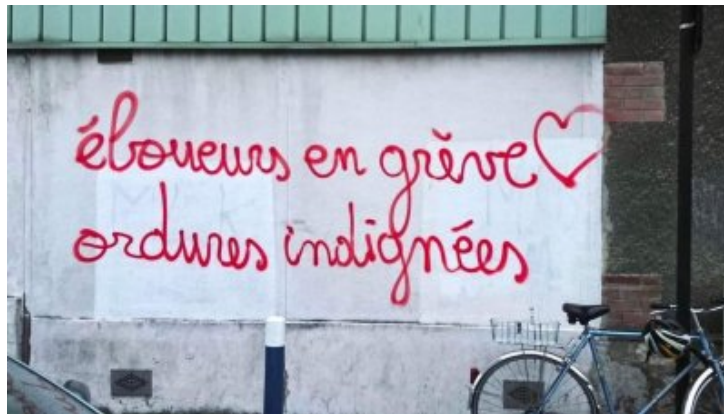 éboueurs en grève ♡
ordures indignées